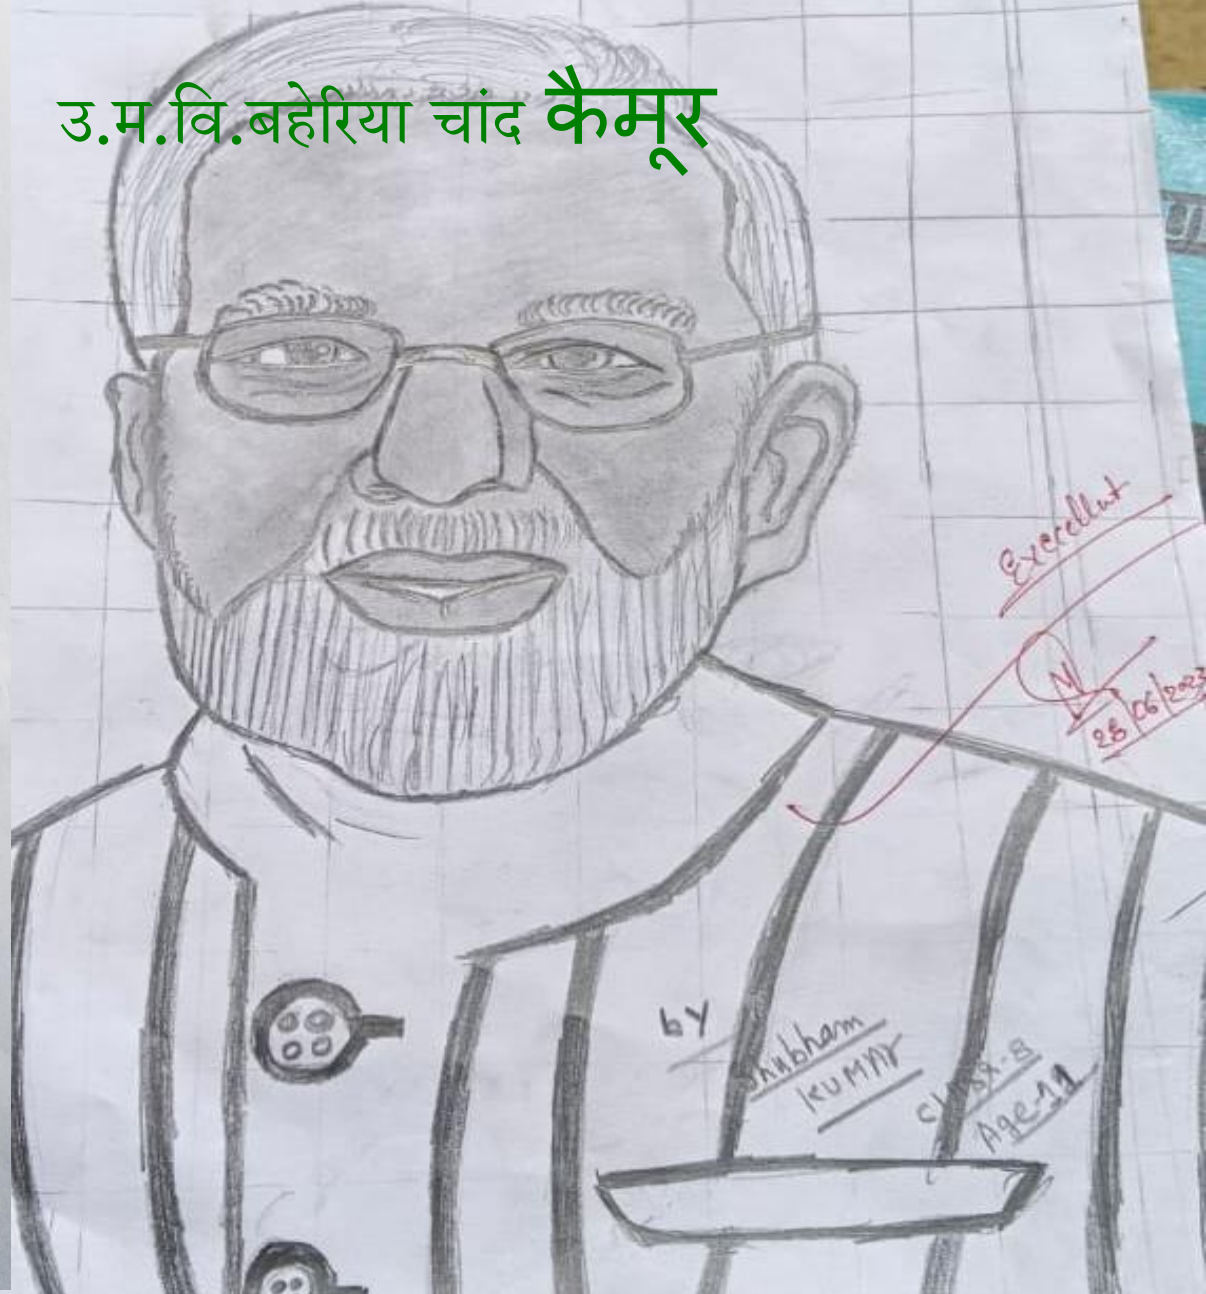 उ.म.वि.बहेरिया चांद कैमूर
Exercellent
28/06/2023
by
Shubham
KUMAr
Class-8
Age-11